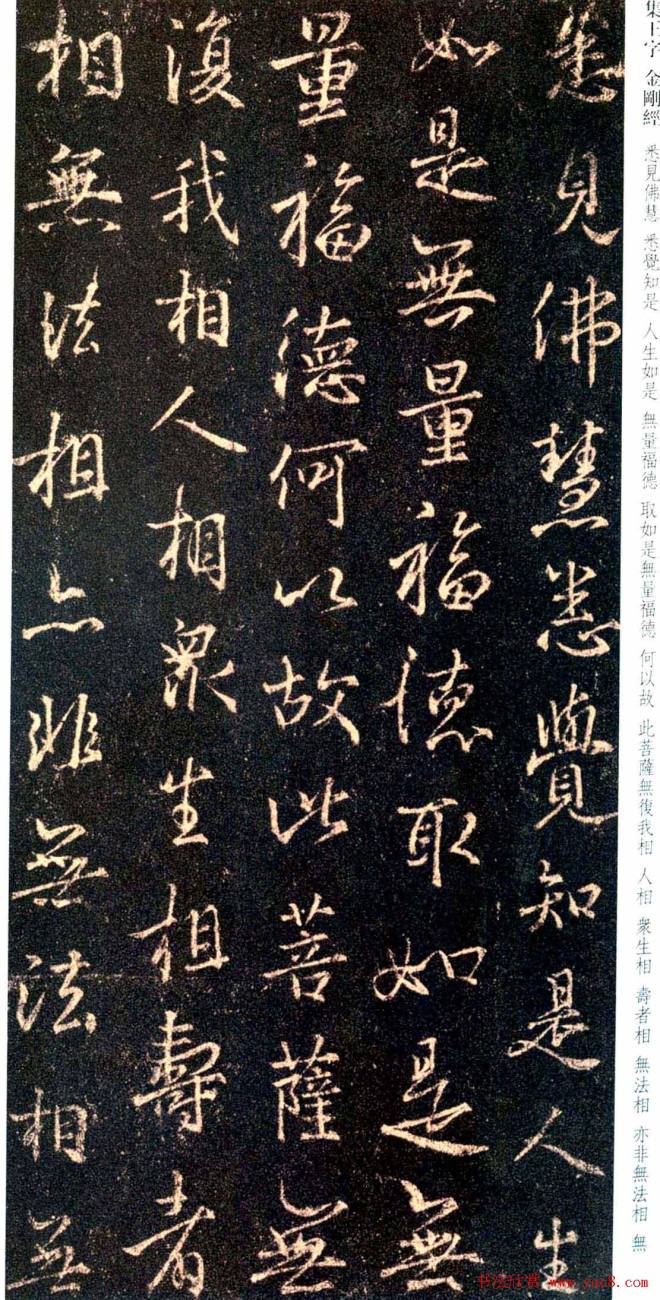 集王字 金剛經 悉見佛慧 悉覺知是 人生如是 無量福德 取如是無量福德 何以故 此菩薩無復我相 人相 衆生相 壽者相 無法相 亦非無法相 無
悉見佛慧悉覺知是人生
如是無量福德取如是無
量福德何以故此菩薩無
復我相人相衆生相壽者
相無法相相亦非無法相無
书法欣赏 www.yac8.com